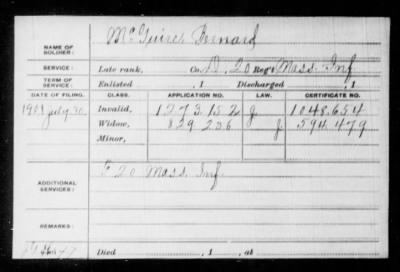 NAME OF SOLDIER: McGuirer Bernard
SERVICE: Late rank, Co. D, 20 Reg't Mass. Inf.
TERM OF SERVICE: Enlisted , 1 Discharged , 1
DATE OF FILING. CLASS. APPLICATION NO. LAW. CERTIFICATE NO.
July 30 Invalid, 1273.152 J. 1048.654
Widow, 829 236 J. 594 479
Minor,
ADDITIONAL SERVICES: F 20 Mass. Inf.
REMARKS:
Died , 1 , at